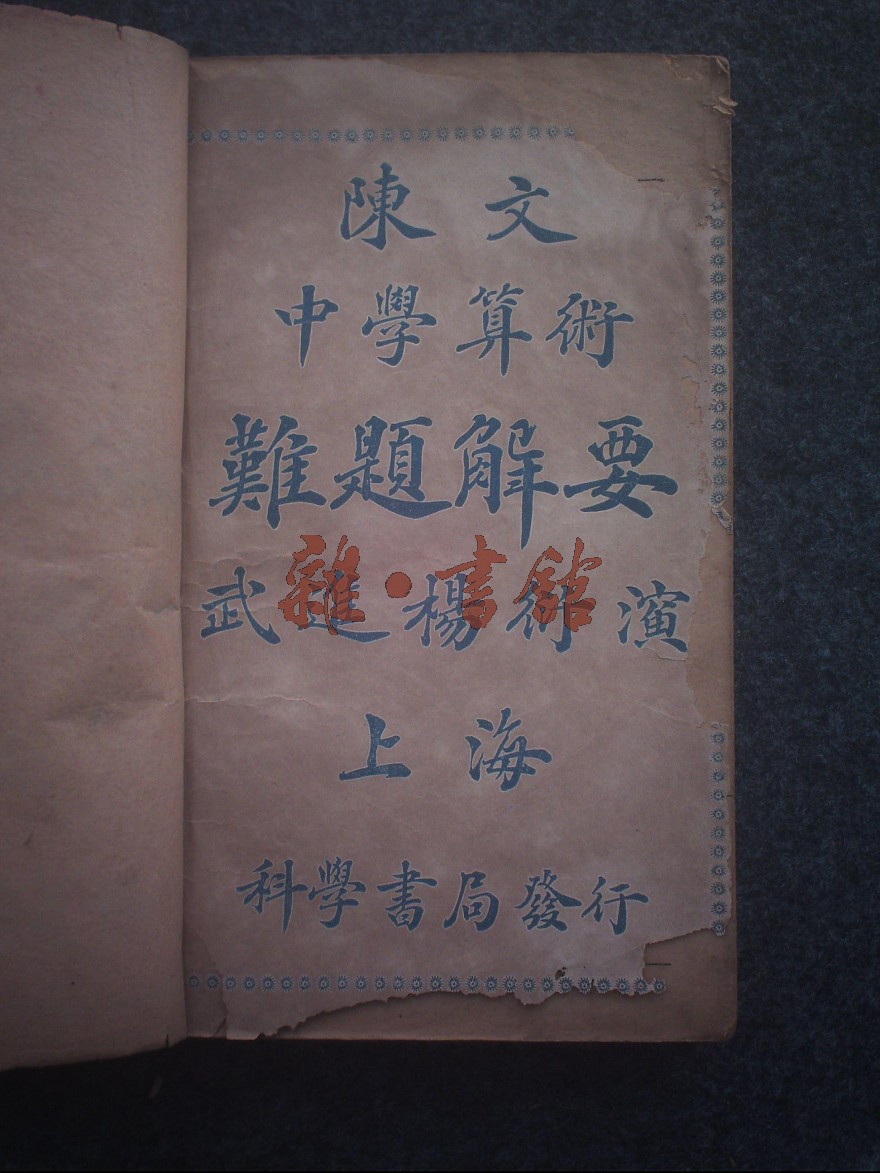 陳文
中學算術
難題解要
雜·書館
武進楊衍演
上海
科學書局發行